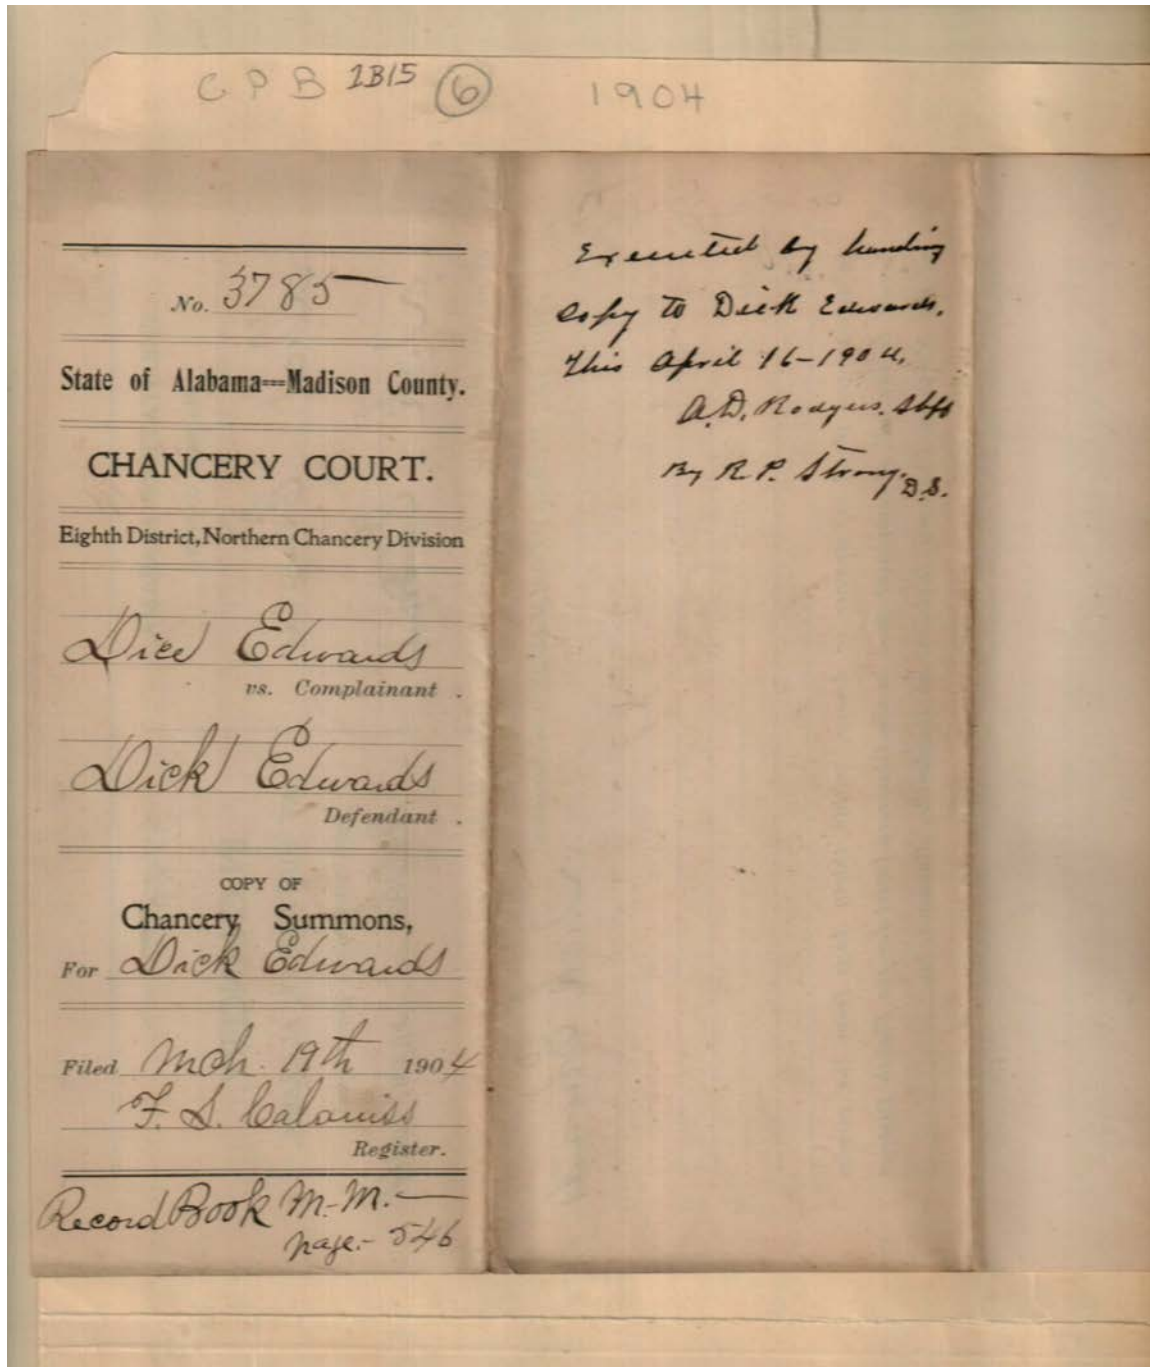 C P B 1B15 6 1904
No. 3785
State of Alabama---Madison County.
CHANCERY COURT.
Eighth District, Northern Chancery Division
Dice Edwards
vs. Complainant .
Dick Edwards
Defendant .
COPY OF
Chancery Summons,
For Dick Edwards
Filed Mch. 19th 1904
F. S.
Register.
Record Book M.-M.—
page.- 546
Executed by handing
copy to Dick Edwards.
this April 16-1904.
A.D. Rodgers. Shff
By R. P. Strong. D.S.